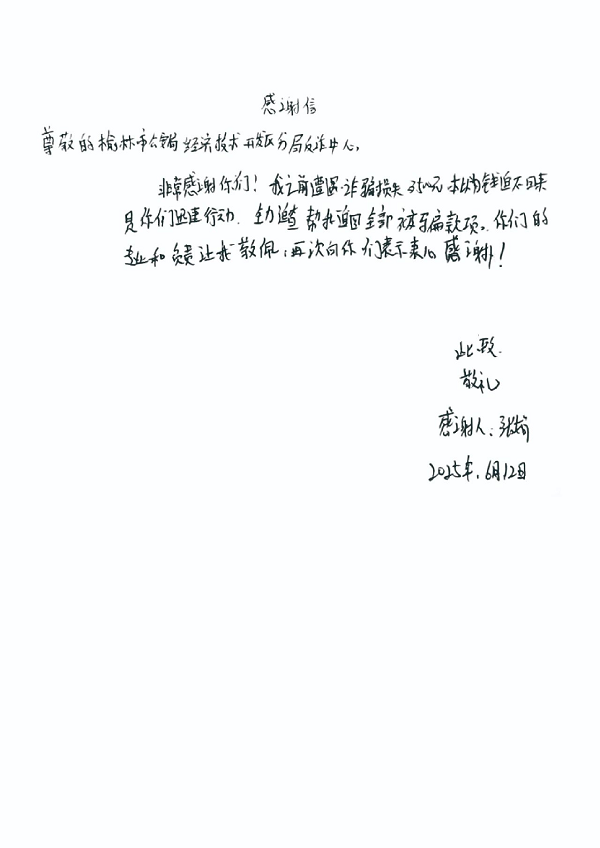 感谢信
尊敬的榆林市公安局经济技术开发区分局反诈中心,
非常感谢你们!我之前遭遇诈骗损失3500元本以为钱追不回来
是你们迅速行动.全力追查帮我追回全部被骗款项.你们的
专业和负责让我敬佩,再次向你们表示衷心感谢!
此致.
敬礼
感谢人:张
2025年.6月12日